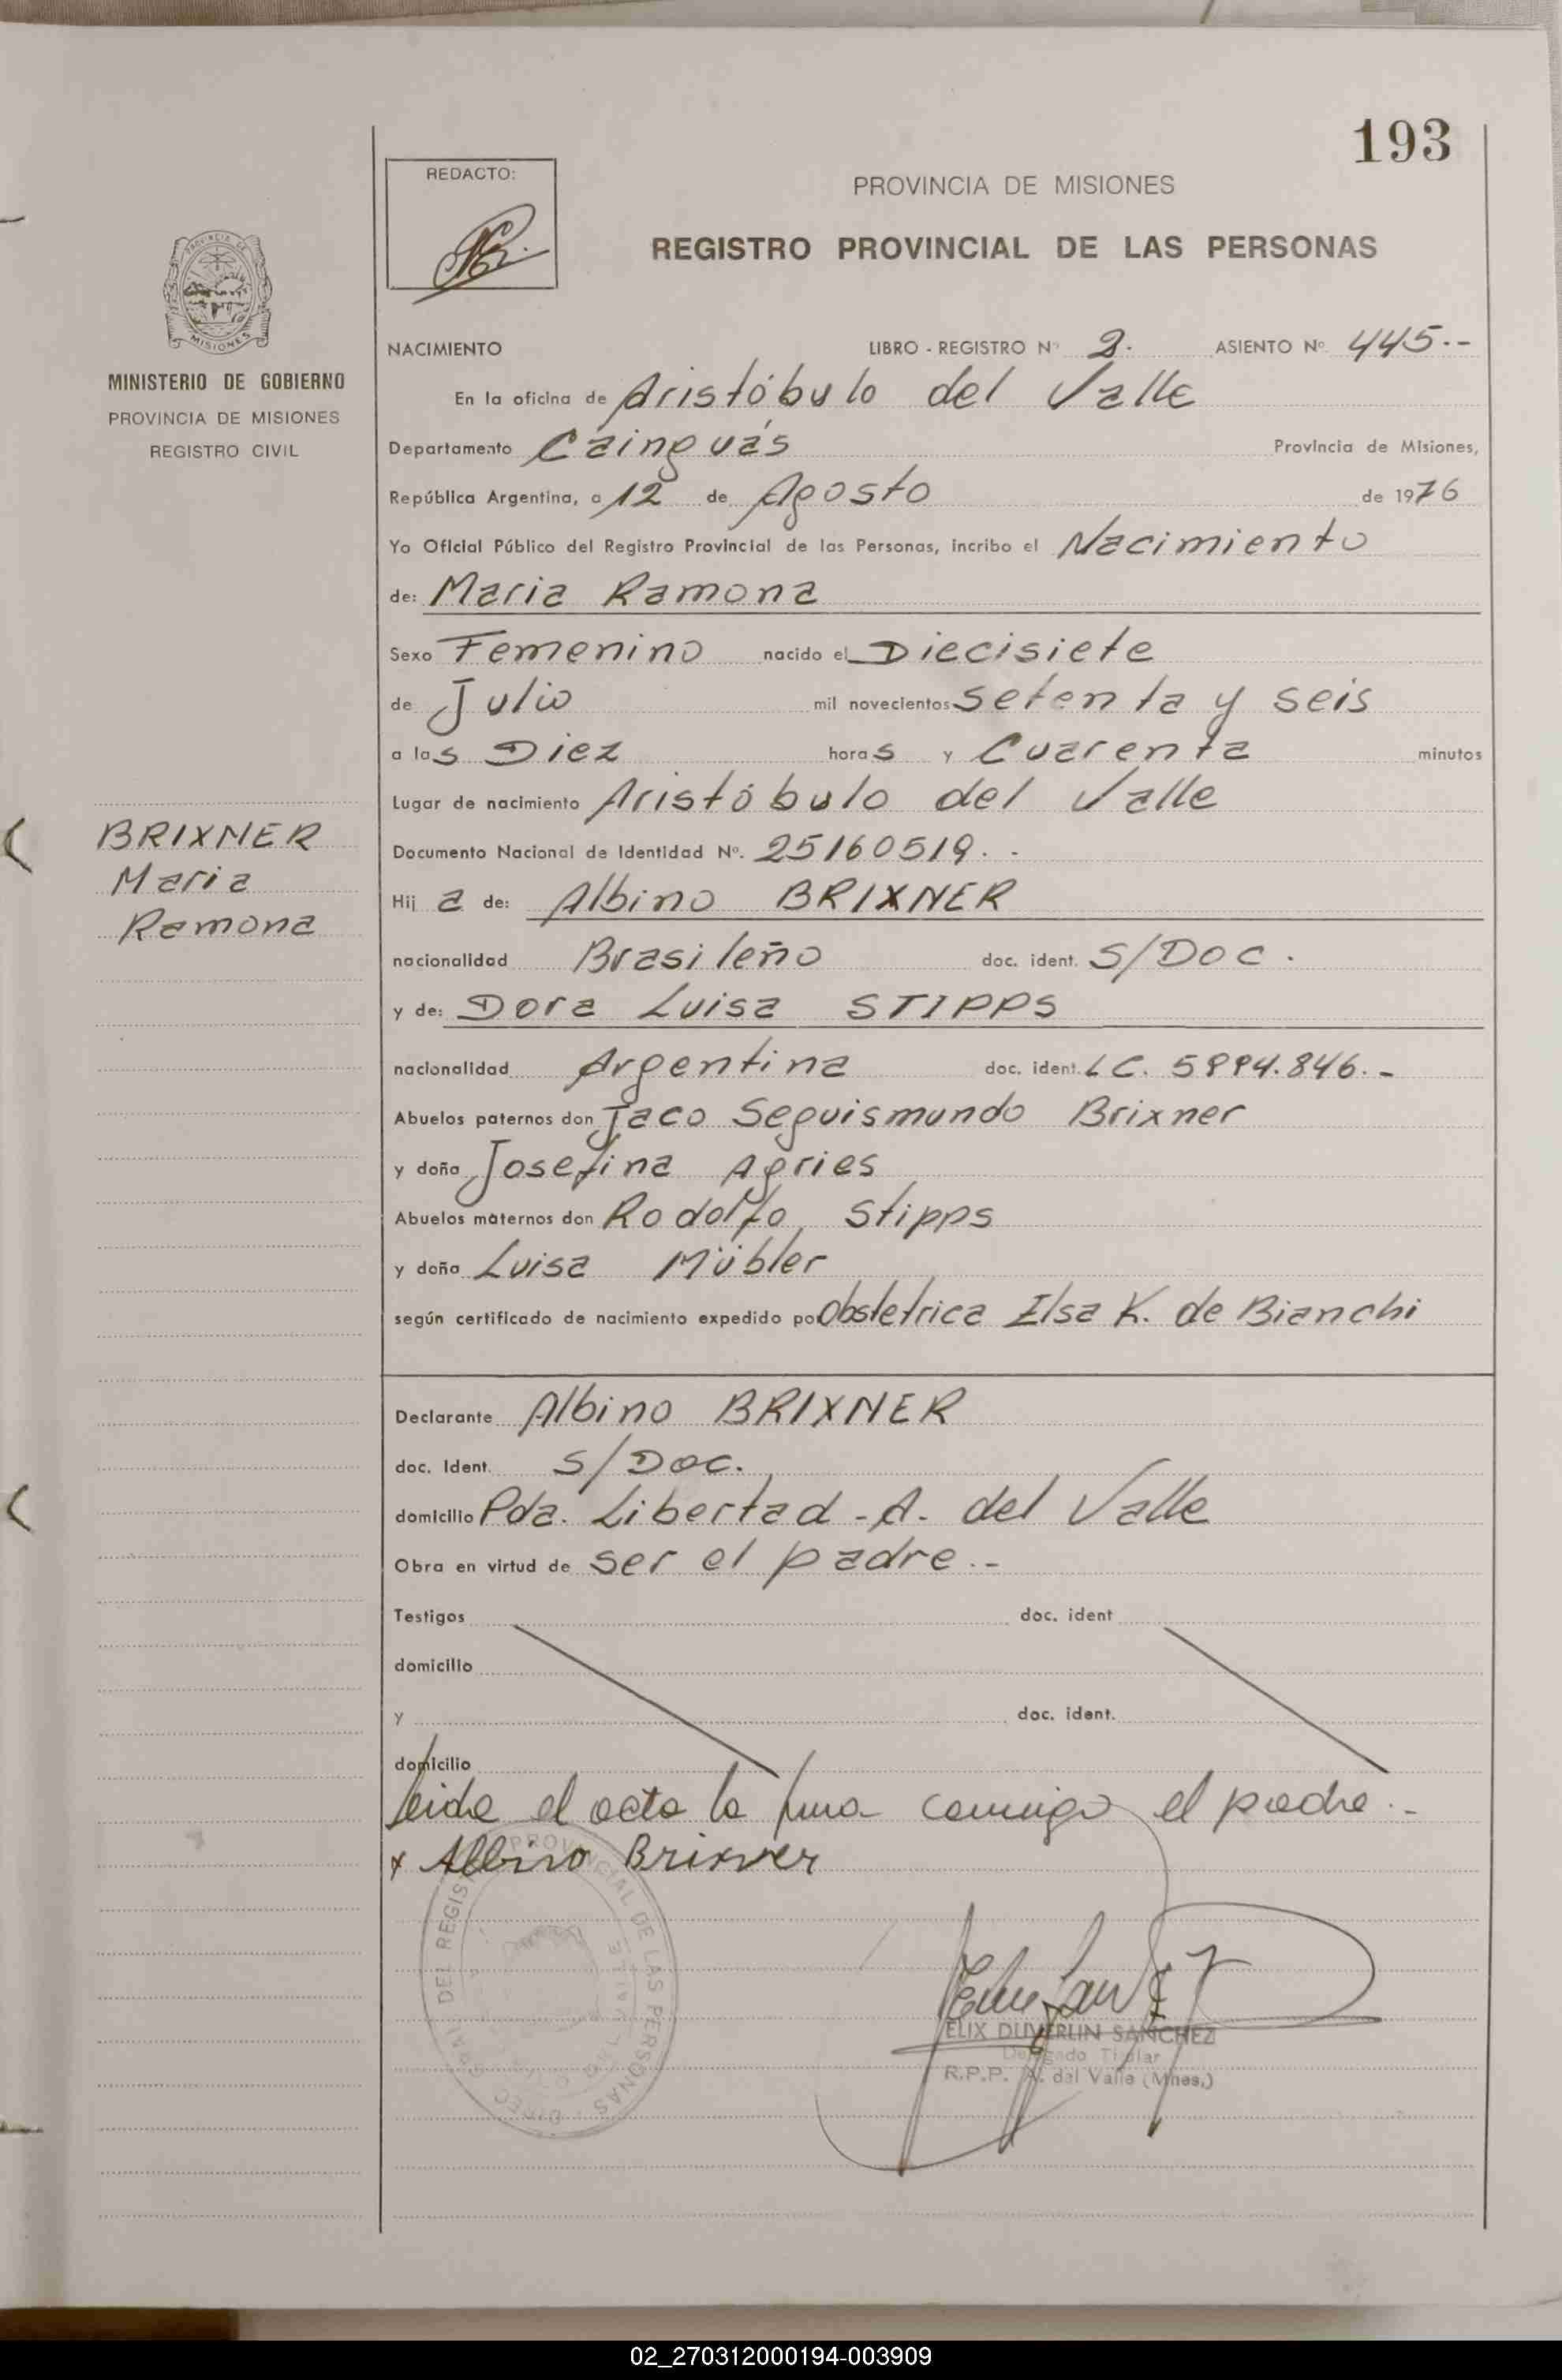 193
REDACTO:
PROVINCIA DE MISIONES
REGISTRO PROVINCIAL DE LAS PERSONAS
MINISTERIO DE GOBIERNO
PROVINCIA DE MISIONES
REGISTRO CIVIL
NACIMIENTO LIBRO - REGISTRO Nº 2. ASIENTO Nº 445.-
En la oficina de Aristóbulo del Valle
Departamento Cainguás Provincia de Misiones,
República Argentina, a 12 de Agosto de 1976
Yo Oficial Público del Registro Provincial de las Personas, incribo el Nacimiento
de: Maria Ramona
Sexo Femenino nacido el Diecisiete
de Julio mil novecientos setenta y seis
a las Diez horas y Cuarenta minutos
Lugar de nacimiento Aristóbulo del Valle
BRIXNER
Maria
Ramona
Documento Nacional de Identidad Nº. 25160519. -
Hij a de: Albino BRIXNER
nacionalidad Brasileño doc. ident. S/DOC.
y de: Dora Luisa STIPPS
nacionalidad Argentina doc. ident. LC.
Abuelos paternos don Jaco Seguismundo Brixner
y doña Josefina Agries
Abuelos maternos don Rodolfo Stipps
y doña Luisa Mübler
según certificado de nacimiento expedido por Obstetrica Elsa K. de Bianchi
Declarante Albino BRIXNER
doc. Ident. S/DOC.
domicilio Pda. Libertad - A. del Valle
Obra en virtud de ser el padre.-
Testigos doc. ident
domicilio
y doc. ident.
domicilio
leida el acta la firma conmigo el padre.-
x Albino Brixner
DIREC. GRAL. DEL REGISTRO PROVINCIAL DE LAS PERSONAS
ELIX DUVERLIN SANCHEZ
Delegado Titular
R.P.P. A. del Valle (Mnes.)
02_270312000194-003909